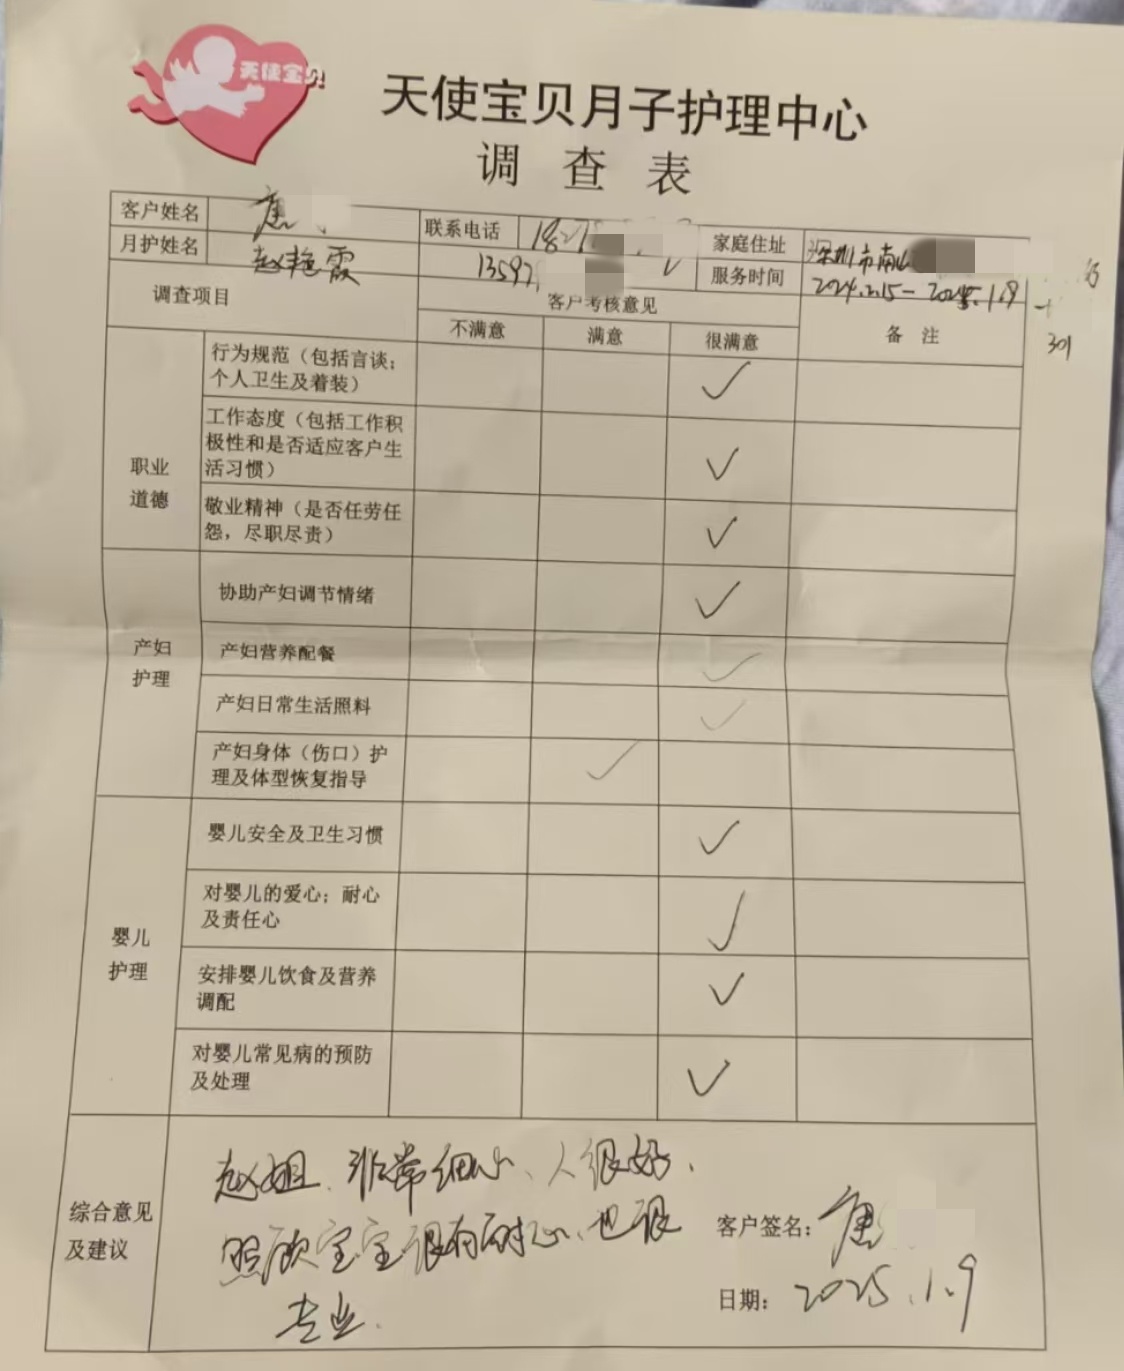 天使宝贝
天使宝贝月子护理中心
调 查 表
客户姓名
联系电话 18
家庭住址 深圳市南山
月护姓名 赵艳霞
13597
服务时间 2024.12.15-2025.1.9
301
调查项目
客户考核意见
备 注
不满意 满意 很满意
职业
道德
行为规范（包括言谈；
个人卫生及着装）
✓
工作态度（包括工作积
极性和是否适应客户生
活习惯）
✓
敬业精神（是否任劳任
怨，尽职尽责）
✓
产妇
护理
协助产妇调节情绪
✓
产妇营养配餐
✓
产妇日常生活照料
✓
产妇身体（伤口）护
理及体型恢复指导
✓
婴儿
护理
婴儿安全及卫生习惯
✓
对婴儿的爱心；耐心
及责任心
✓
安排婴儿饮食及营养
调配
✓
对婴儿常见病的预防
及处理
✓
综合意见
及建议
赵姐、非常细心、人很好、
照顾宝宝很有耐心、也很
专业.
客户签名：
日期：2025.1.9